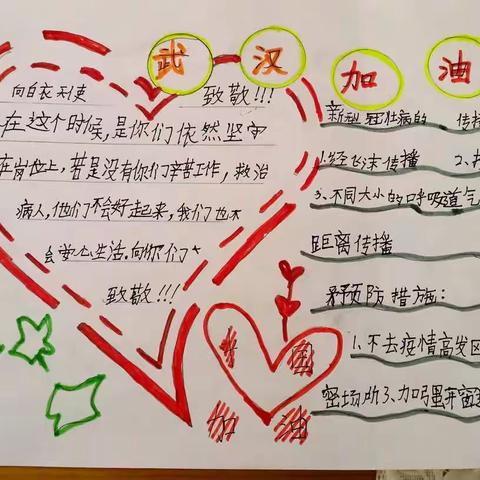 武汉加油
向白衣天使
致敬!!!
在这个时候,是你们依然坚守
在岗位上,若是没有你们辛苦工作,救治
病人,他们不会好起来,我们也不
会安心生活.向你们
致敬!!!
中国
加油
新型冠状病的 传播
1.经飞沫传播 2.
3.不同大小的呼吸道气
距离传播
预防措施:
1.不去疫情高发区
密场所3、加强开窗